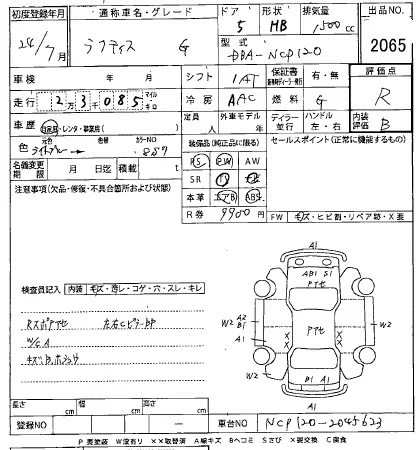 初度登録年月 通称車名・グレード ドア 形状 排気量 出品NO.
24/7月 ラクティス G 5 HB 1,500cc
型式 DBA-NCP120 2065
車検 年 月 シフト IAT 保証書 有・無 評価点
走行 2万3千085 マイル キロ 冷房 AAC 燃料 G R
車歴 自家用・レンタ・事業用( ) 定員 人 外車モデル 年 ディーラー 並行 ハンドル 左・右 内装評価 B
色 元色 色替 カラーNO 装備品(純正品に限る) セールスポイント(正常に機能するもの)
PS PW AW
名義変更期限 月 日迄 積載 t
SR TV
注意事項(欠品・修復・不具合箇所および状態)
本革 エアB ABS
R券 9900円 FW キズ・ヒビ割・リペア跡・X要
A1
AB1 S1
Pアセ
検査員記入 内装 キズ・汚レ・コゲ・穴・スレ・キレ
Rスポアセ 左右CピラーBP
W/CA
W2 A2 B1 A1 Pアセ W2 A1
W2 W2
B1 A1
A1
長さ cm 幅 cm 高さ cm
登録NO 車台NO NCP120-2045623
P要塗装 W波有り XX取替済 A線キズ Bヘコミ Sさび X要交換 C腐食